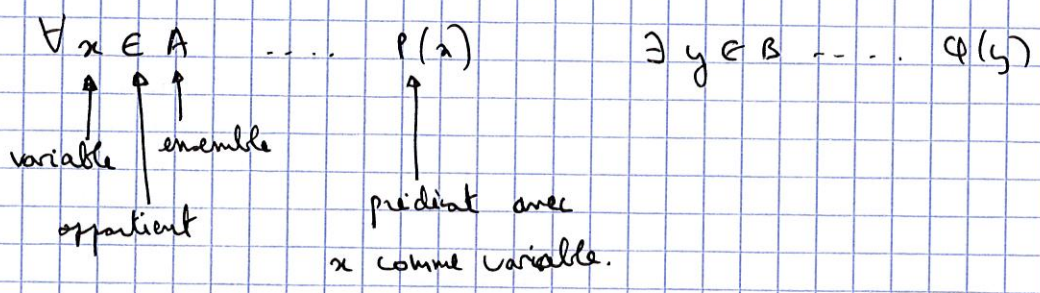 ∀ x ∈ A ..... P(x) ∃ y ∈ B ..... φ(y)
variable ensemble
appartient prédicat avec
x comme variable.